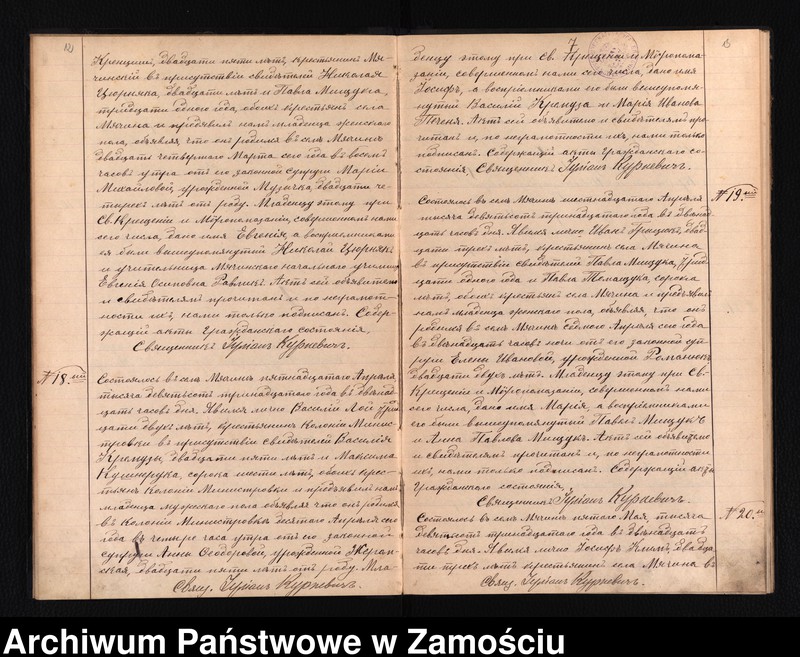 12
Крещукъ, двадцати пяти лѣтъ, крестьянинъ Мя-
чинскій въ присутствіи свидѣтелей Николая
Цюрика, двадцати лѣтъ и Павла Мищука,
тридцати одного года, обоихъ крестьянъ села
Мячина и предъявилъ намъ младенца женскаго
пола, объявляя, что онъ родился въ селѣ Мячинѣ
двадцать четвертаго Марта сего года въ восемь
часовъ утра отъ его законной супруги Маріи
Михайловой, урожденной Музычка, двадцати че-
тырехъ лѣтъ отъ роду. Младенцу этому при
Св. Крещеніи и Мѵропомазаніи, совершенномъ нами
сего числа, дано имя Евгенія, а воспріемниками
ея были вышеупомянутый Николай
и учительница Мячинскаго начальнаго училища
Евгенія Осиповна Актъ сей объявителю
и свидѣтелямъ прочитанъ и по неграмот-
ности ихъ, нами только подписанъ. Содер-
жащій акты гражданскаго состоянія,
Священникъ Іуліанъ Куркевичъ.
№ 18.
Состоялось въ селѣ Мячинѣ пятнадцатаго Апрѣля,
тысяча девятьсотъ тринадцатаго года въ двѣнад-
цать часовъ дня. Явился лично Василій Лой, трид-
цати двухъ лѣтъ, крестьянинъ колоніи Минис-
тровки въ присутствіи свидѣтелей Василія
двадцати пяти лѣтъ и Максима
сорока шести лѣтъ, обоихъ крес-
тьянъ колоніи Министровки и предъявилъ намъ
младенца мужескаго пола объявляя что онъ родился
въ колоніи Министровкѣ десятаго Апрѣля сего
года въ четыре часа утра отъ его законной
супруги Анны Ѳеодоровой, урожденной
двадцати пяти лѣтъ отъ роду. Мла-
Свящ. Іуліанъ Куркевичъ.
7
13
денцу этому при Св. Крещеніи и Мѵропома-
заніи, совершенномъ нами сего числа, дано имя
Іосифъ, а воспріемниками его были вышеупомя-
нутый Василій и Марія Иванова
Актъ сей объявителю и свидѣтелямъ про-
читанъ и, по неграмотности ихъ, нами только
подписанъ. Содержащій акты гражданскаго со-
стоянія Священникъ Іуліанъ Куркевичъ.
№ 19.
Состоялось въ селѣ Мячинѣ шестнадцатаго Апрѣля
тысяча девятьсотъ тринадцатаго года въ двѣнад-
цать часовъ дня. Явился лично Иванъ двад-
цати трехъ лѣтъ, крестьянинъ села Мячина
въ присутствіи свидѣтелей Павла Мищука, трид-
цати одного года и Павла Томащука, сорока
лѣтъ, обоихъ крестьянъ села Мячина и предъявилъ
намъ младенца женскаго пола, объявляя, что онъ
родился въ селѣ Мячинѣ седьмого Апрѣля сего года
въ двѣнадцать часовъ ночи отъ его законной суп-
руги Елены Ивановой, урожденной Романюкъ
двадцати двухъ лѣтъ. Младенцу этому при Св.
Крещеніи и Мѵропомазаніи, совершенномъ нами
сего числа, дано имя Марія, а воспріемниками
его были вышеупомянутый Павелъ Мищукъ
и Анна Павлова Мищукъ. Актъ сей объявителю
и свидѣтелямъ прочитанъ и, по неграмотности
ихъ, нами только подписанъ. Содержащій акты
гражданскаго состоянія,
Священникъ Іуліанъ Куркевичъ.
№ 20.
Состоялось въ селѣ Мячинѣ пятаго Мая, тысяча
девятьсотъ тринадцатаго года въ двѣнадцать
часовъ дня. Явился лично Іосифъ двадца-
ти трехъ лѣтъ крестьянинъ села Мячина въ
Свящ. Іуліанъ Куркевичъ.
Archiwum Państwowe w Zamościu